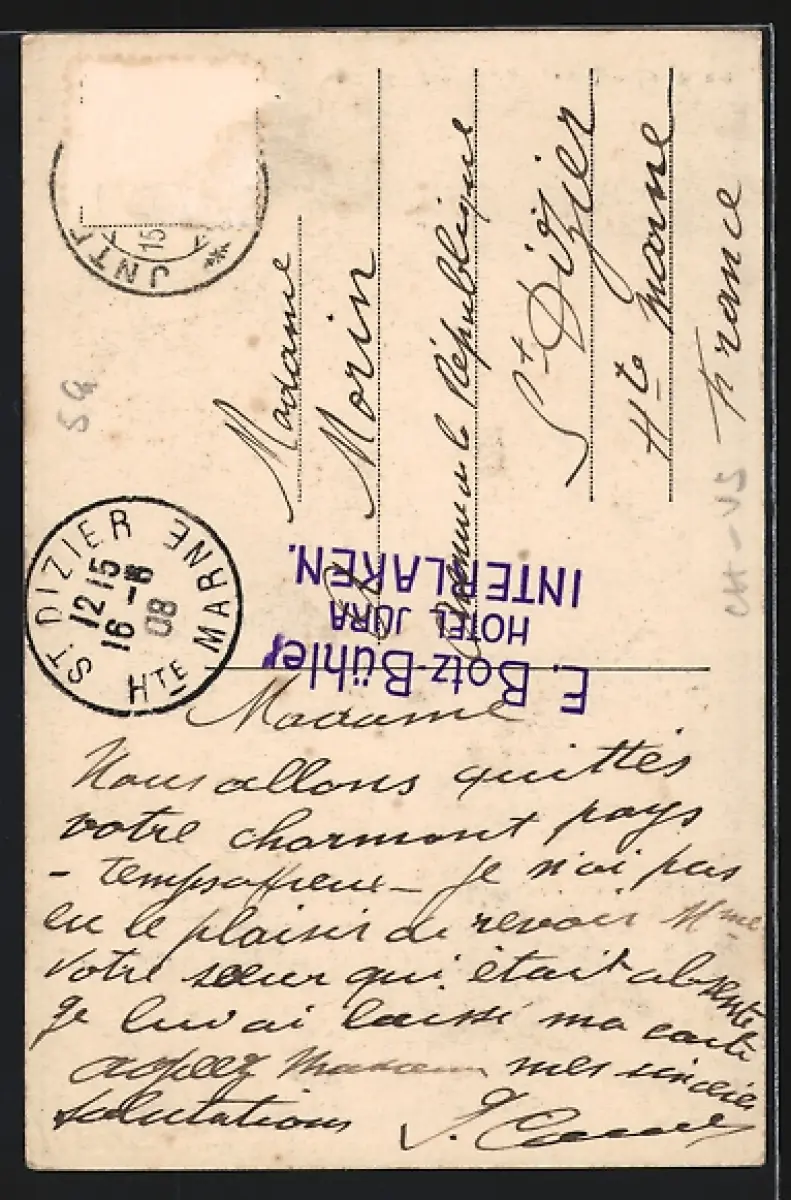 JNTE
15
SG
Madame
Morin
de la République
St Dizier
Hte Marne
France
CH-VS
ST DIZIER
12 15
16 -6
08
HTE MARNE
E. Botz-Bühler
HOTEL JURA
INTERLAKEN.
Madame
Nous allons quittés
votre charmant pays
- temps affreux - je n'ai pas
eu le plaisir de revoir Mme
votre sœur qui était absente
je lui ai laissé ma carte
Madame mes sincères
salutations